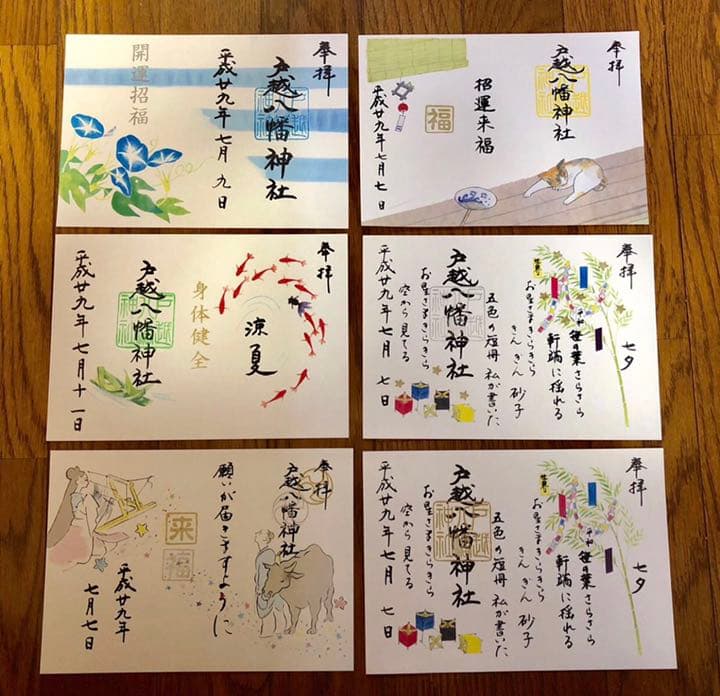 奉拝
戸越八幡神社
平成廿九年 七月 九日
開運招福
奉拝
戸越八幡神社
招運来福
福
平成廿九年七月七日
奉拝
涼夏
身体健全
戸越八幡神社
平成廿九年 七月十一日
奉拝
七夕
笹の葉さらさら
軒端に揺れる
お星さまきらきら
きんぎん砂子
五色の短冊 私が書いた
戸越八幡神社
お星さまきらきら
空から見てる
平成廿九年 七月 七日
奉拝
戸越八幡神社
願いが届きますように
来福
平成廿九年
七月七日
奉拝
七夕
笹の葉さらさら
軒端に揺れる
お星さまきらきら
きんぎん砂子
五色の短冊 私が書いた
戸越八幡神社
お星さまきらきら
空から見てる
平成廿九年 七月 七日